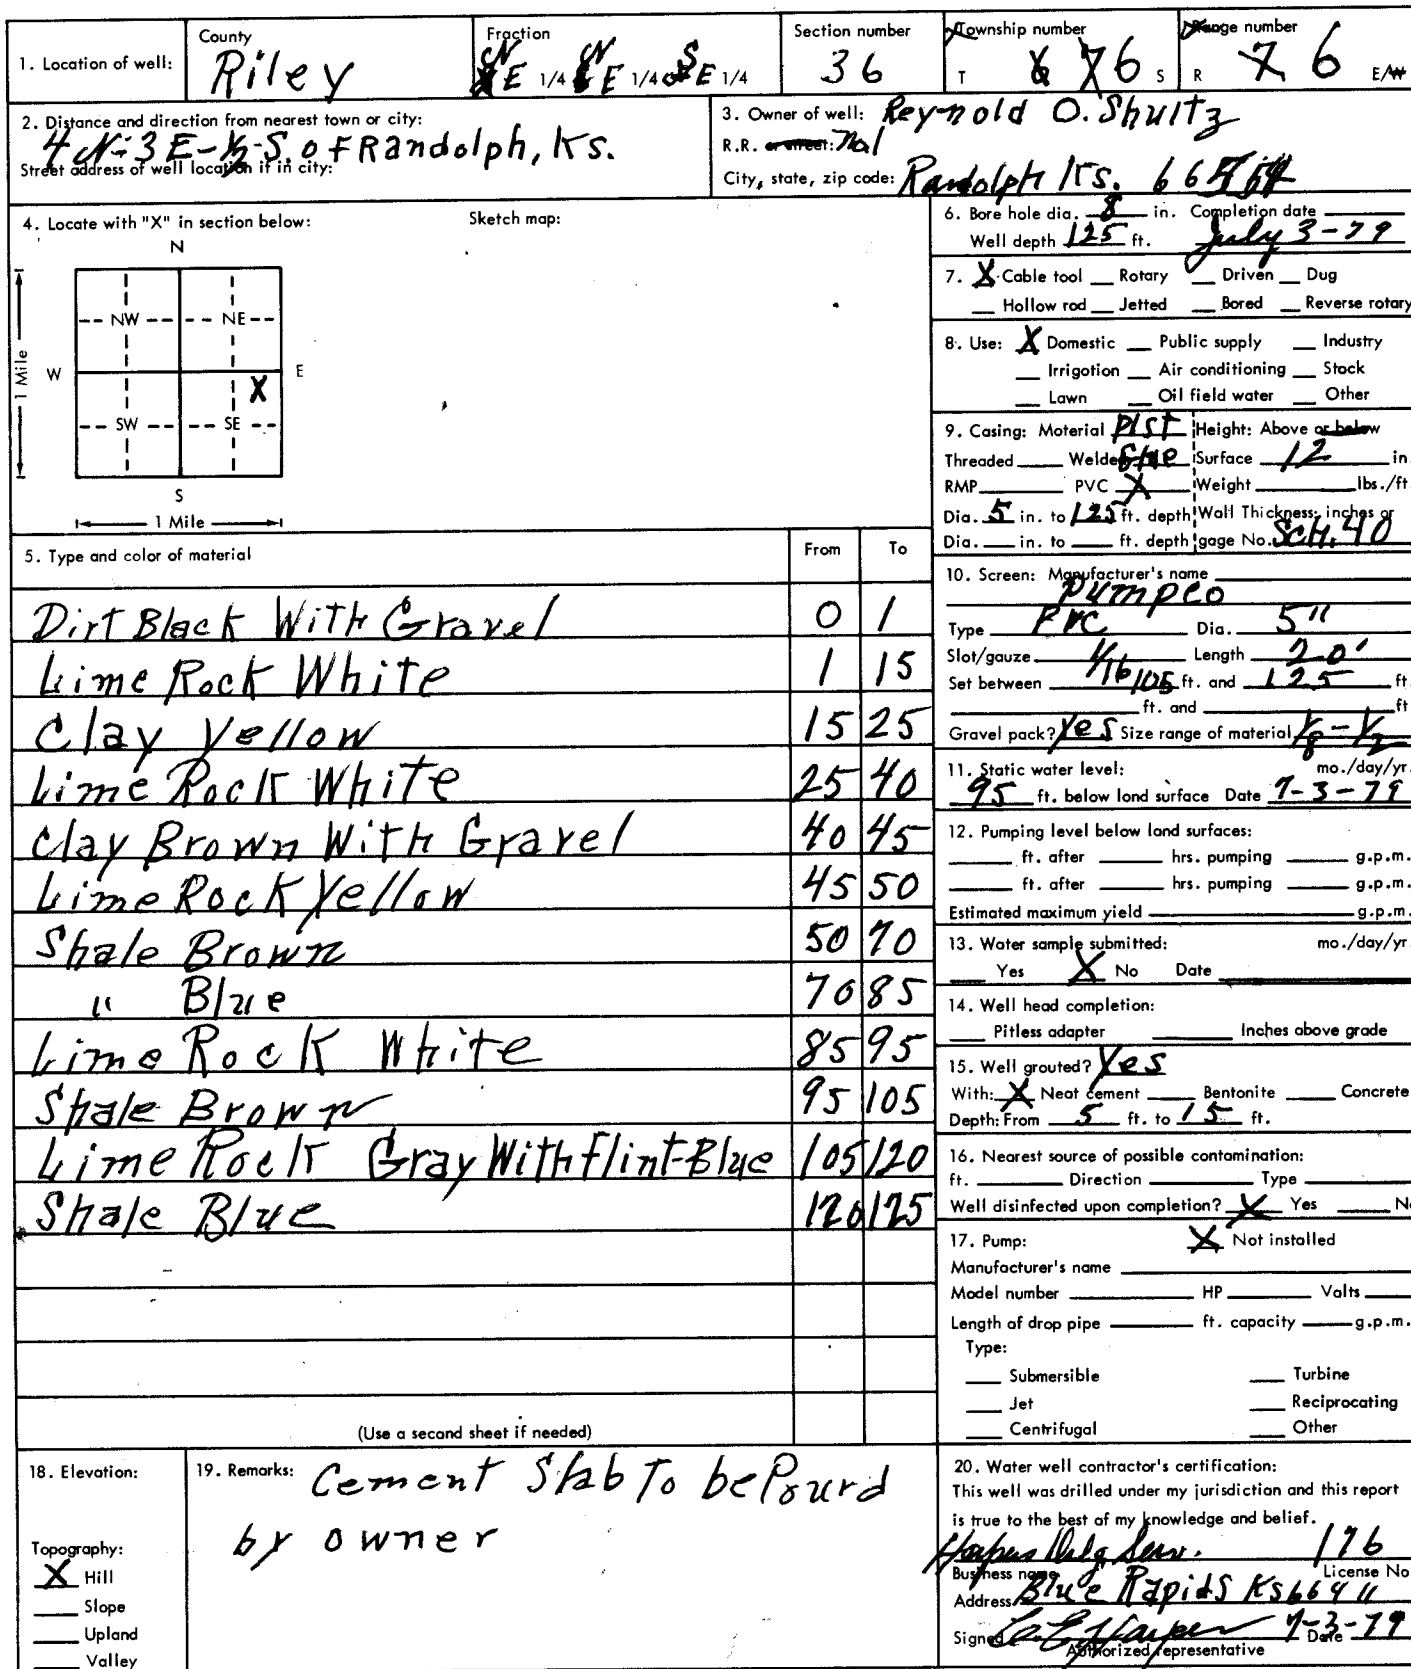 1. Location of well: County Riley Fraction NE 1/4 NE 1/4 SE 1/4 Section number 36 Township number T 6 S Range number R 6 E/W
2. Distance and direction from nearest town or city:
4 N-3 E-½-S. of Randolph, Ks.
Street address of well location if in city:
3. Owner of well: Reynold O. Shultz
R.R. or street: No1
City, state, zip code: Randolph Ks.
4. Locate with "X" in section below: Sketch map:
N
NW NE
1 Mile W X E
SW SE
S
1 Mile
5. Type and color of material From To
Dirt Black With Gravel 0 1
Lime Rock White 1 15
Clay Yellow 15 25
Lime Rock White 25 40
Clay Brown With Gravel 40 45
Lime Rock Yellow 45 50
Shale Brown 50 70
" Blue 70 85
Lime Rock White 85 95
Shale Brown 95 105
Lime Rock Gray With Flint-Blue 105 120
Shale Blue 120 125
(Use a second sheet if needed)
6. Bore hole dia. 8 in. Completion date
Well depth 125 ft. July 3-79
7. X Cable tool Rotary Driven Dug
Hollow rod Jetted Bored Reverse rotary
8. Use: X Domestic Public supply Industry
Irrigation Air conditioning Stock
Lawn Oil field water Other
9. Casing: Material Plst Height: Above or below
Threaded Welded Glue Surface 12 in.
RMP PVC X Weight lbs./ft.
Dia. 5 in. to 125 ft. depth Wall Thickness: inches or
Dia. in. to ft. depth gage No. Sch. 40
10. Screen: Manufacturer's name
Pumpco
Type PVC Dia. 5"
Slot/gauze 1/16 Length 20'
Set between 105 ft. and 125 ft.
ft. and ft
Gravel pack? Yes Size range of material 1/8 - 1/2
11. Static water level: mo./day/yr.
95 ft. below land surface Date 7-3-79
12. Pumping level below land surfaces:
ft. after hrs. pumping g.p.m.
ft. after hrs. pumping g.p.m.
Estimated maximum yield g.p.m.
13. Water sample submitted: mo./day/yr.
Yes X No Date
14. Well head completion:
Pitless adapter Inches above grade
15. Well grouted? Yes
With: X Neat cement Bentonite Concrete
Depth: From 5 ft. to 15 ft.
16. Nearest source of possible contamination:
ft. Direction Type
Well disinfected upon completion? X Yes No
17. Pump: X Not installed
Manufacturer's name
Model number HP Volts
Length of drop pipe ft. capacity g.p.m.
Type:
Submersible Turbine
Jet Reciprocating
Centrifugal Other
18. Elevation:
Topography:
X Hill
Slope
Upland
Valley
19. Remarks: Cement Slab To be Pourd
by owner
20. Water well contractor's certification:
This well was drilled under my jurisdiction and this report
is true to the best of my knowledge and belief.
Harpers Drlg Serv. 176
Business name License No
Address Blue Rapids Ks 66411
Signed C.E. Harper 7-3-79 Date
Authorized representative